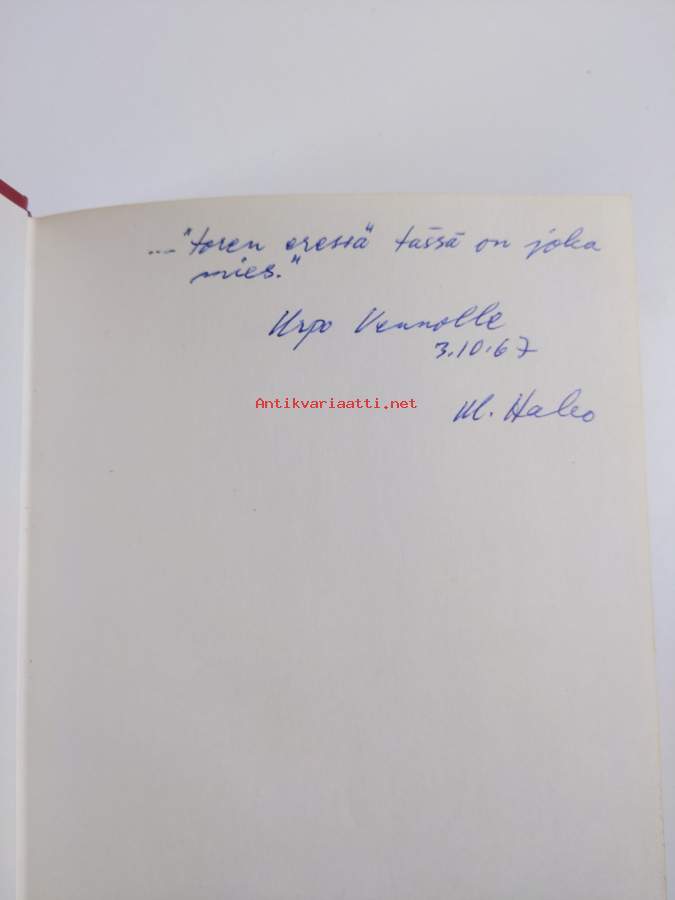 ... "toren eressä tässä on joka
mies."
Urpo Vennolle
3.10.67
Antikvariaatti.net
M. Halso